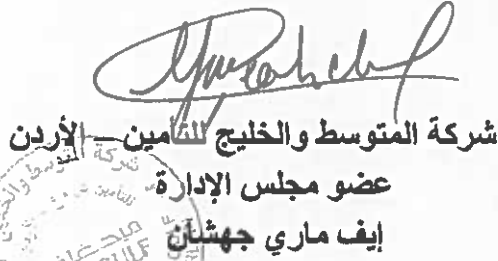 شركة المتوسط والخليج للتأمين – الأردن
عضو مجلس الإدارة
إيف ماري جهشان